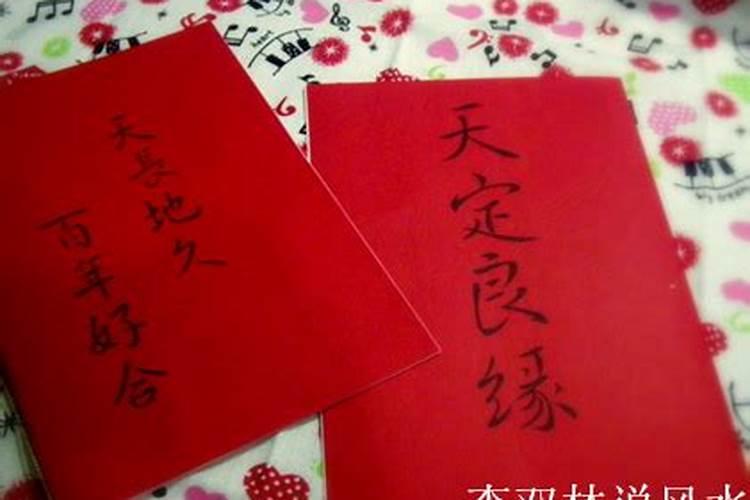 天長地久
百年好合
天定良缘
李双林说风水